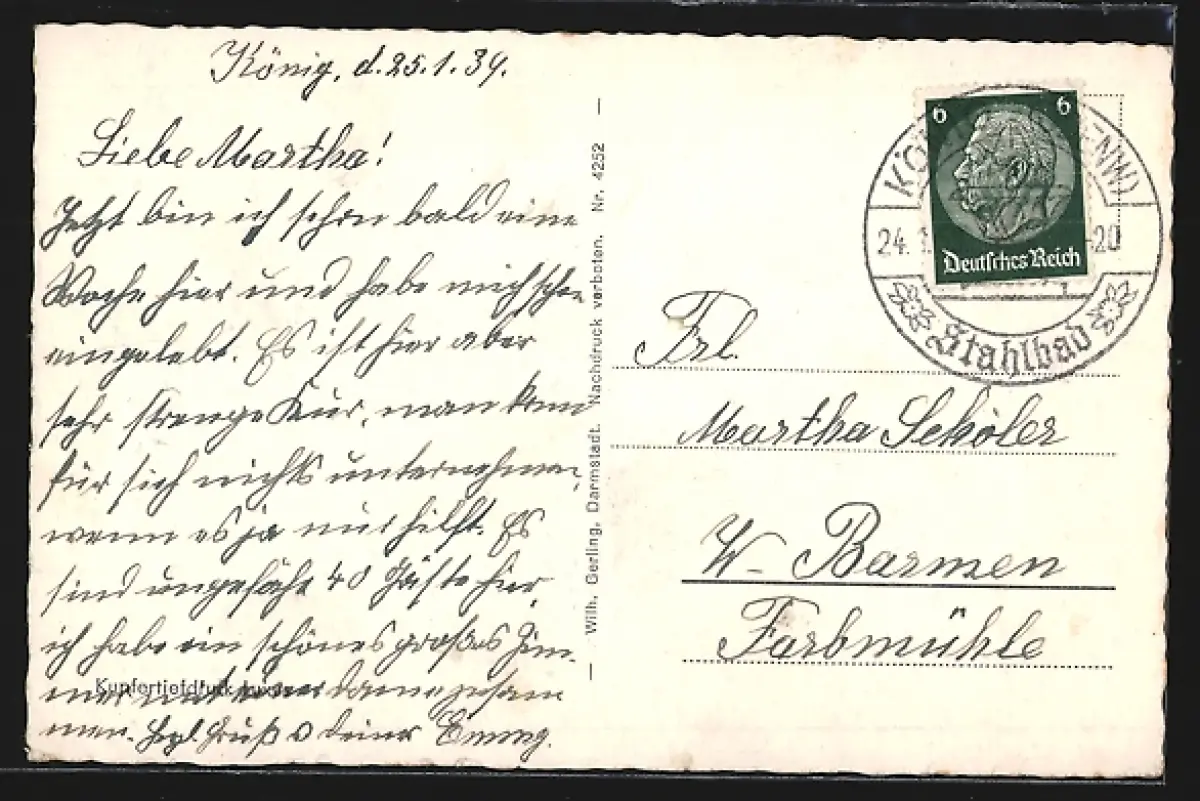 König, d. 25.1.39.
Liebe Martha!
Jetzt bin ich schon bald eine
Woche hier und habe mich schon
eingelebt. Es ist hier aber
sehr strenge Kur, man kann
für sich nichts unternehmen,
wenn es ja nur hilft. Es
sind ungefähr 40 Gäste hier,
ich habe ein schönes großes Zim-
mer mit einer Dame zusam
men. Hzl. Gruß deiner Emmy.
Kupfertiefdruck
Wilh. Gerling, Darmstadt. Nachdruck verboten. Nr. 4252
6 6
Deutsches Reich
24. -20
Stahlbad
Frl.
Martha Schöler
W- Barmen
Farbmühle